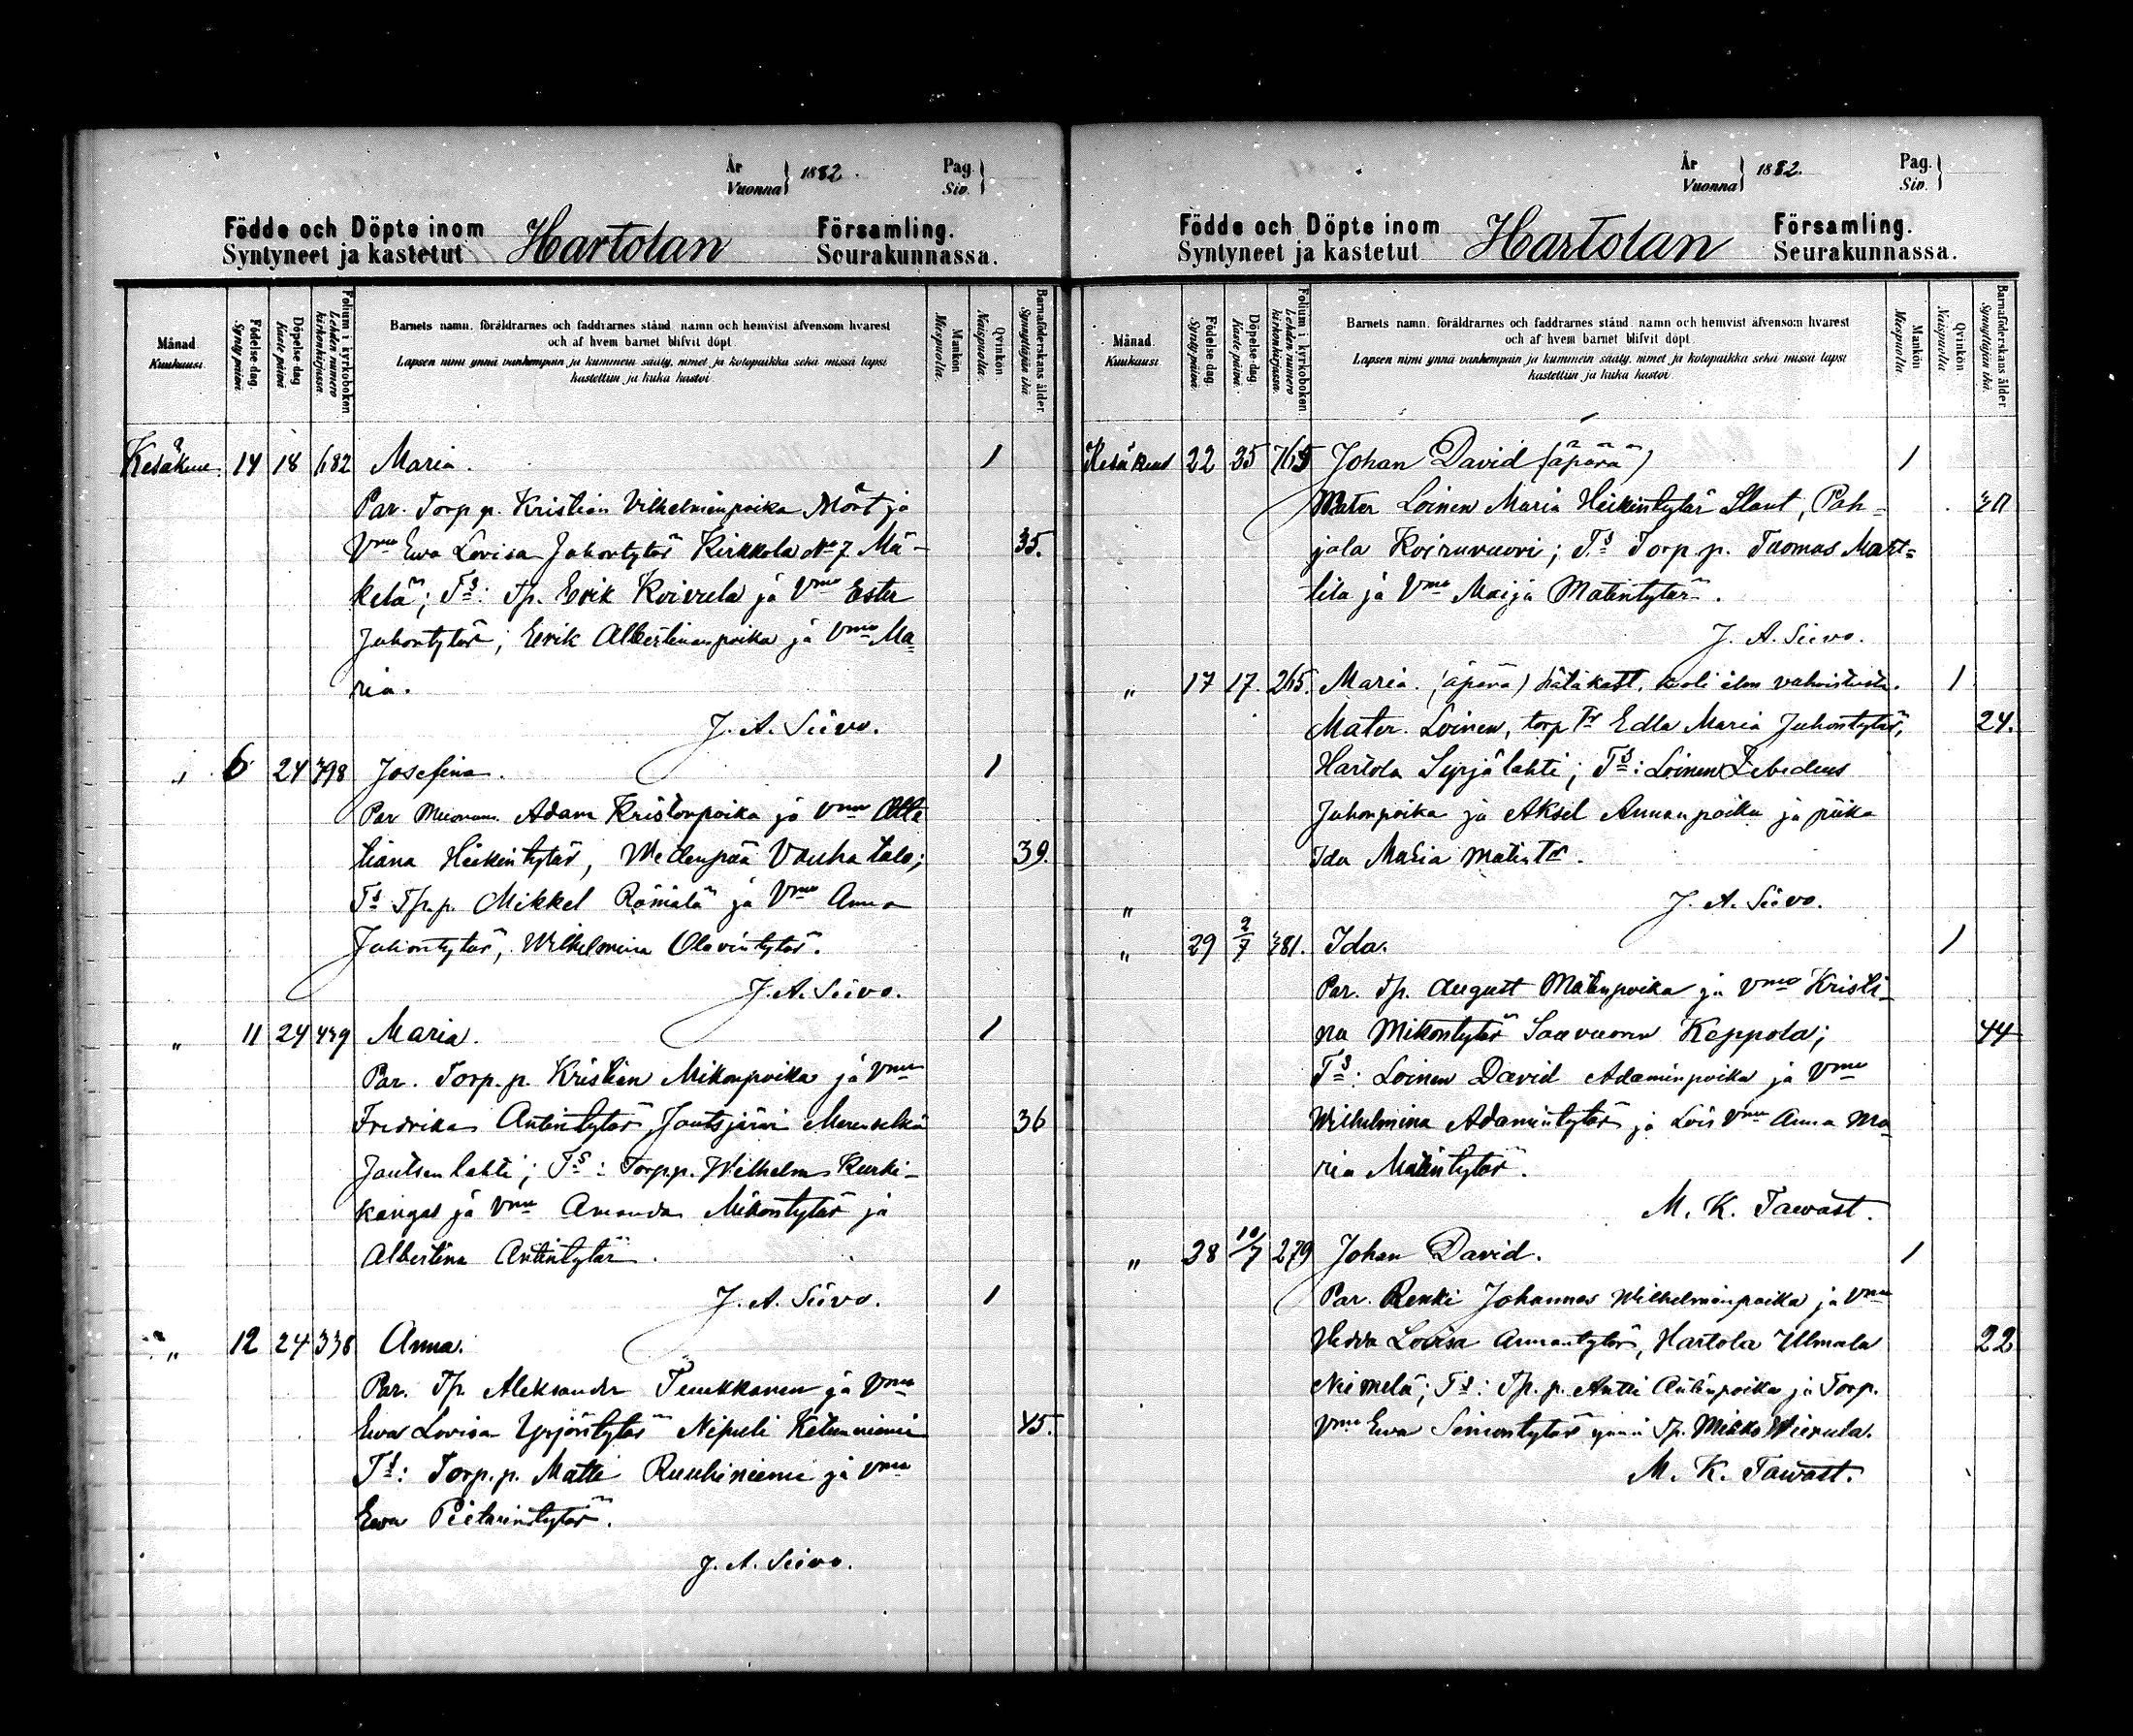 År
Vuonna } 1882.
Pag.
Siv. }
Födde och Döpte inom Hartolan Församling.
Syntyneet ja kastetut Seurakunnassa.
Månad. Kuukausi.
Födelse-dag. Synty päivä.
Döpelse-dag. Kaste päivä.
Folium i kyrkoboken. Lehden numero kirkonkirjassa.
Barnets namn, föräldrarnes och faddrarnes stånd, namn och hemvist äfvensom hvarest
och af hvem barnet blifvit döpt.
Lapsen nimi ynnä vanhempain ja kummein sääty, nimet ja kotopaikka sekä missä lapsi
kastettiin ja kuka kastoi.
Mankön. Miespuolia.
Qvinkön. Naispuolia.
Barnaföderskans ålder. Synnyttäjän ikä.
Kesäkuu 14 18 682 Maria. 1
Par. Torp.p. Kristian Vilhelminpoika Mört ja
Vmo Ewa Lovisa Juhontytär Kirkkola No 7 Mä- 35.
kelä; Ts: Tp. Erik Koivula ja Vmo Ester
Juhontytär; Eerik Albertinanpoika ja Vmo Ma
ria.
J. A. Siivo.
" 6 24 798 Josefina. 1
Par Adam Kristonpoika ja Vmo
tiana Heikintytär, Wedenpää Vauhatalo; 39.
Ts Tp.p. Mikkel Rämälä ja Vmo Anna
Juhontytär, Wilhelmina Olavintytär.
J. A. Siivo.
" 11 24 Maria. 1
Par. Torp.p. Kristian Mikonpoika ja Vmo
Fredrika Antintytär, Joutsjärvi Marenselkä 36
Joutsenlahti; Ts: Torp.p. Wilhelm Kurki-
kangas ja Vmo Amanda Mikontytär ja
Albertina Antintytär.
J. A. Siivo. 1
" 12 24 338 Anna.
Par. Tp. Aleksander Tuukkanen ja Vmo
Ewa Lovisa Yrjöntytär Nipuli Ketunniemi 45.
Ts: Torp.p. Matti Ruuhiniemi ja Vmo
Ewa Pietarintytär.
J. A. Siivo.
År
Vuonna } 1882.
Pag.
Siv. }
Födde och Döpte inom Hartolan Församling.
Syntyneet ja kastetut Seurakunnassa.
Månad. Kuukausi.
Födelse-dag. Synty päivä.
Döpelse-dag. Kaste päivä.
Folium i kyrkoboken. Lehden numero kirkonkirjassa.
Barnets namn, föräldrarnes och faddrarnes stånd, namn och hemvist äfvensom hvarest
och af hvem barnet blifvit döpt.
Lapsen nimi ynnä vanhempain ja kummein sääty, nimet ja kotopaikka sekä missä lapsi
kastettiin ja kuka kastoi.
Mankön. Miespuolia.
Qvinkön. Naispuolia.
Barnaföderskans ålder. Synnyttäjän ikä.
Kesäkuu 22 25 765 Johan David (äpärä) 1
Mater Loinen Maria Heikintytär Slant, Poh-
jola Koiruvuori; Ts Torp.p. Tuomas Mart=
tila ja Vmo Maija Matintytär.
J. A. Siivo.
" 17 17. 265. Maria. (äpärä) hätäkast. kuoli ilm vahvistusta. 1
Mater. Loinen, torp. Tr Edla Maria Juhontytär, 24.
Hartola Syrjälahti; Ts: Loinen Zebedeus
Juhonpoika ja Aksel Annanpoika ja piika
Ida Maria Matintr.
" J. A. Siivo.
" 29 2/7 Ida. 1
Par. Tp. August Matinpoika ja Vmo Kristi-
na Mikontytär Saavuoren Keppola; 44
Ts: Loinen David Adaminpoika ja Vmo
Wilhelmina Adamintytär ja Lois Vmo Anna Ma
ria Matintytär.
M. K. Tawast.
" 28 10/7 279 Johan David. 1
Par. Renki Johannes Wilhelminpoika ja Vmo
Hedda Lovisa Annantytär, Hartola Ulmala 22
Niemelä; Ts: Tp.p. Antti Antinpoika ja Torp.
Vmo Ewa Simontytär ynnä Tp. Mikko Wierula.
M. K. Tawast.